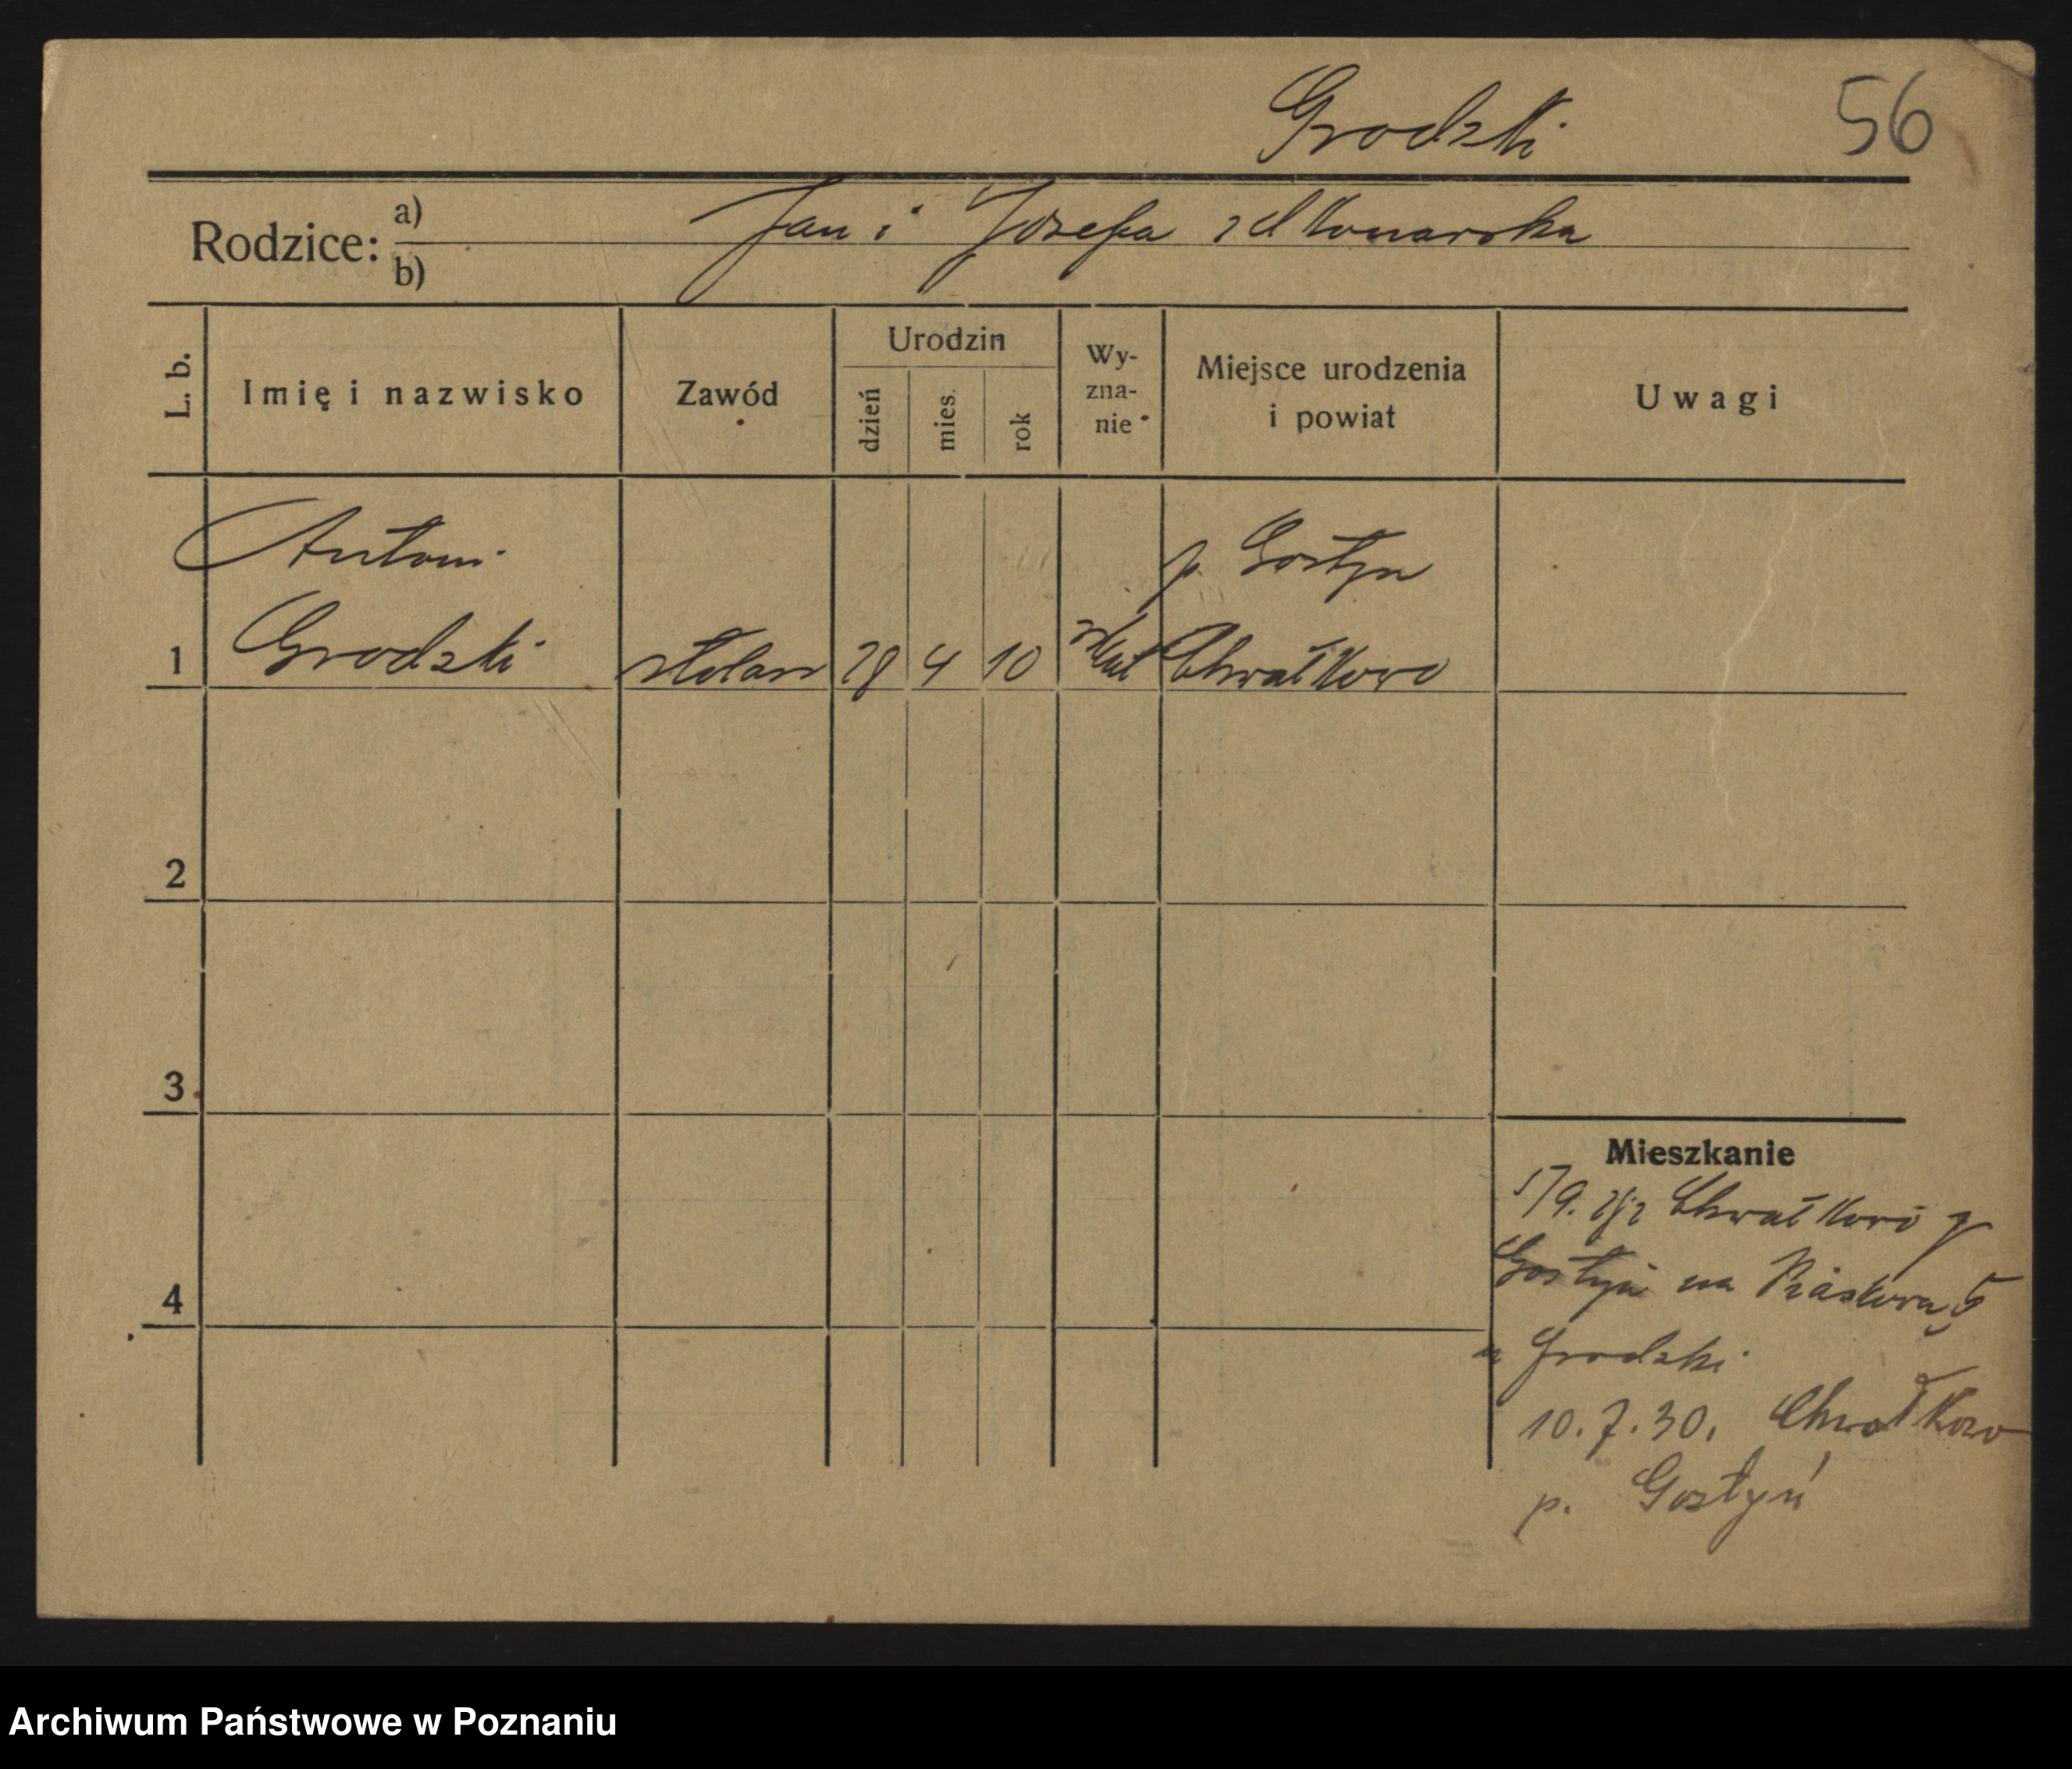 Grodzki 56
Rodzice: a) Jan i Józefa zd Konarska
b)
L. b. Imię i nazwisko Zawód Urodzin dzień mies. rok Wy-zna-nie Miejsce urodzenia i powiat Uwagi
Antoni p. Gostyn
1 Grodzki stolarz 28 4 10 Chwałkowo
2
3
Mieszkanie
Chwałkowo p
Gostyń na
4
u Grodzki
10.7.30. Chwałkowo
p. Gostyń
Archiwum Państwowe w Poznaniu